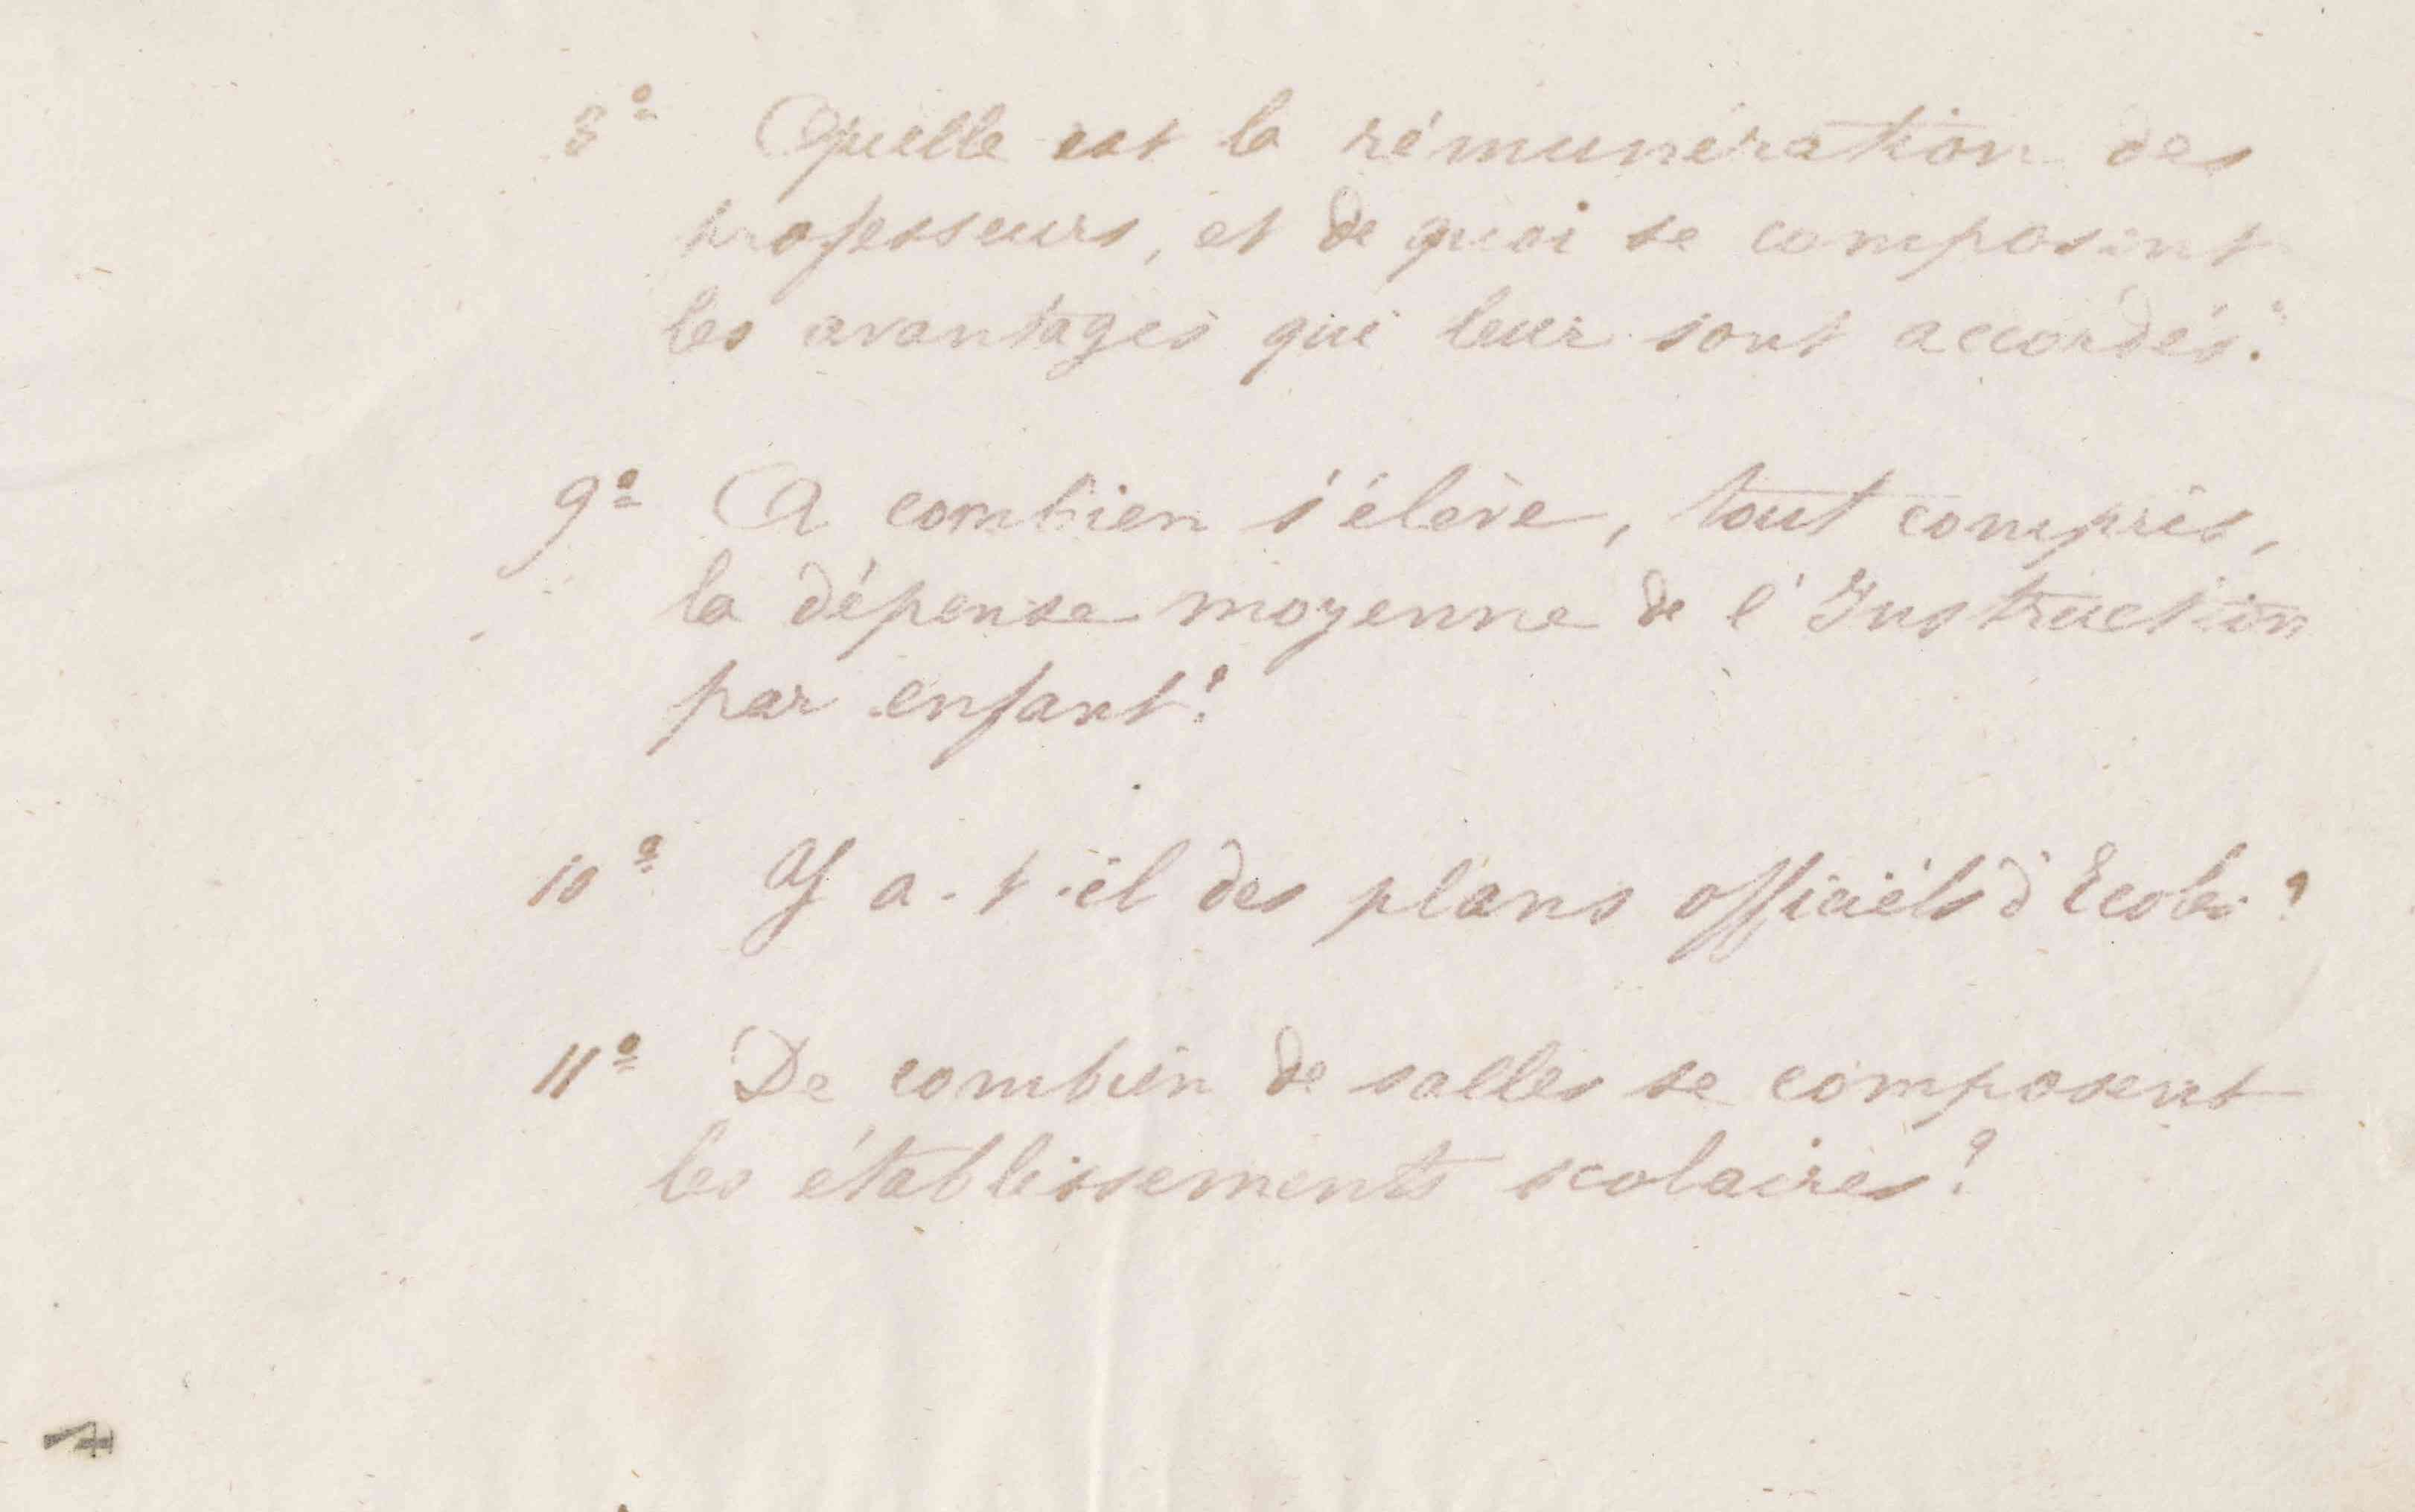 8º Quelle est la rémunération des
professeurs, et de quoi se composent
les avantages qui leur sont accordés?
9º A combien s'élève, tout compris,
la dépense moyenne de l'Instruction
par enfant?
10º Y a-t-il des plans officiels d'Ecoles?
11º De combien de salles se composent
les établissements scolaires?
4